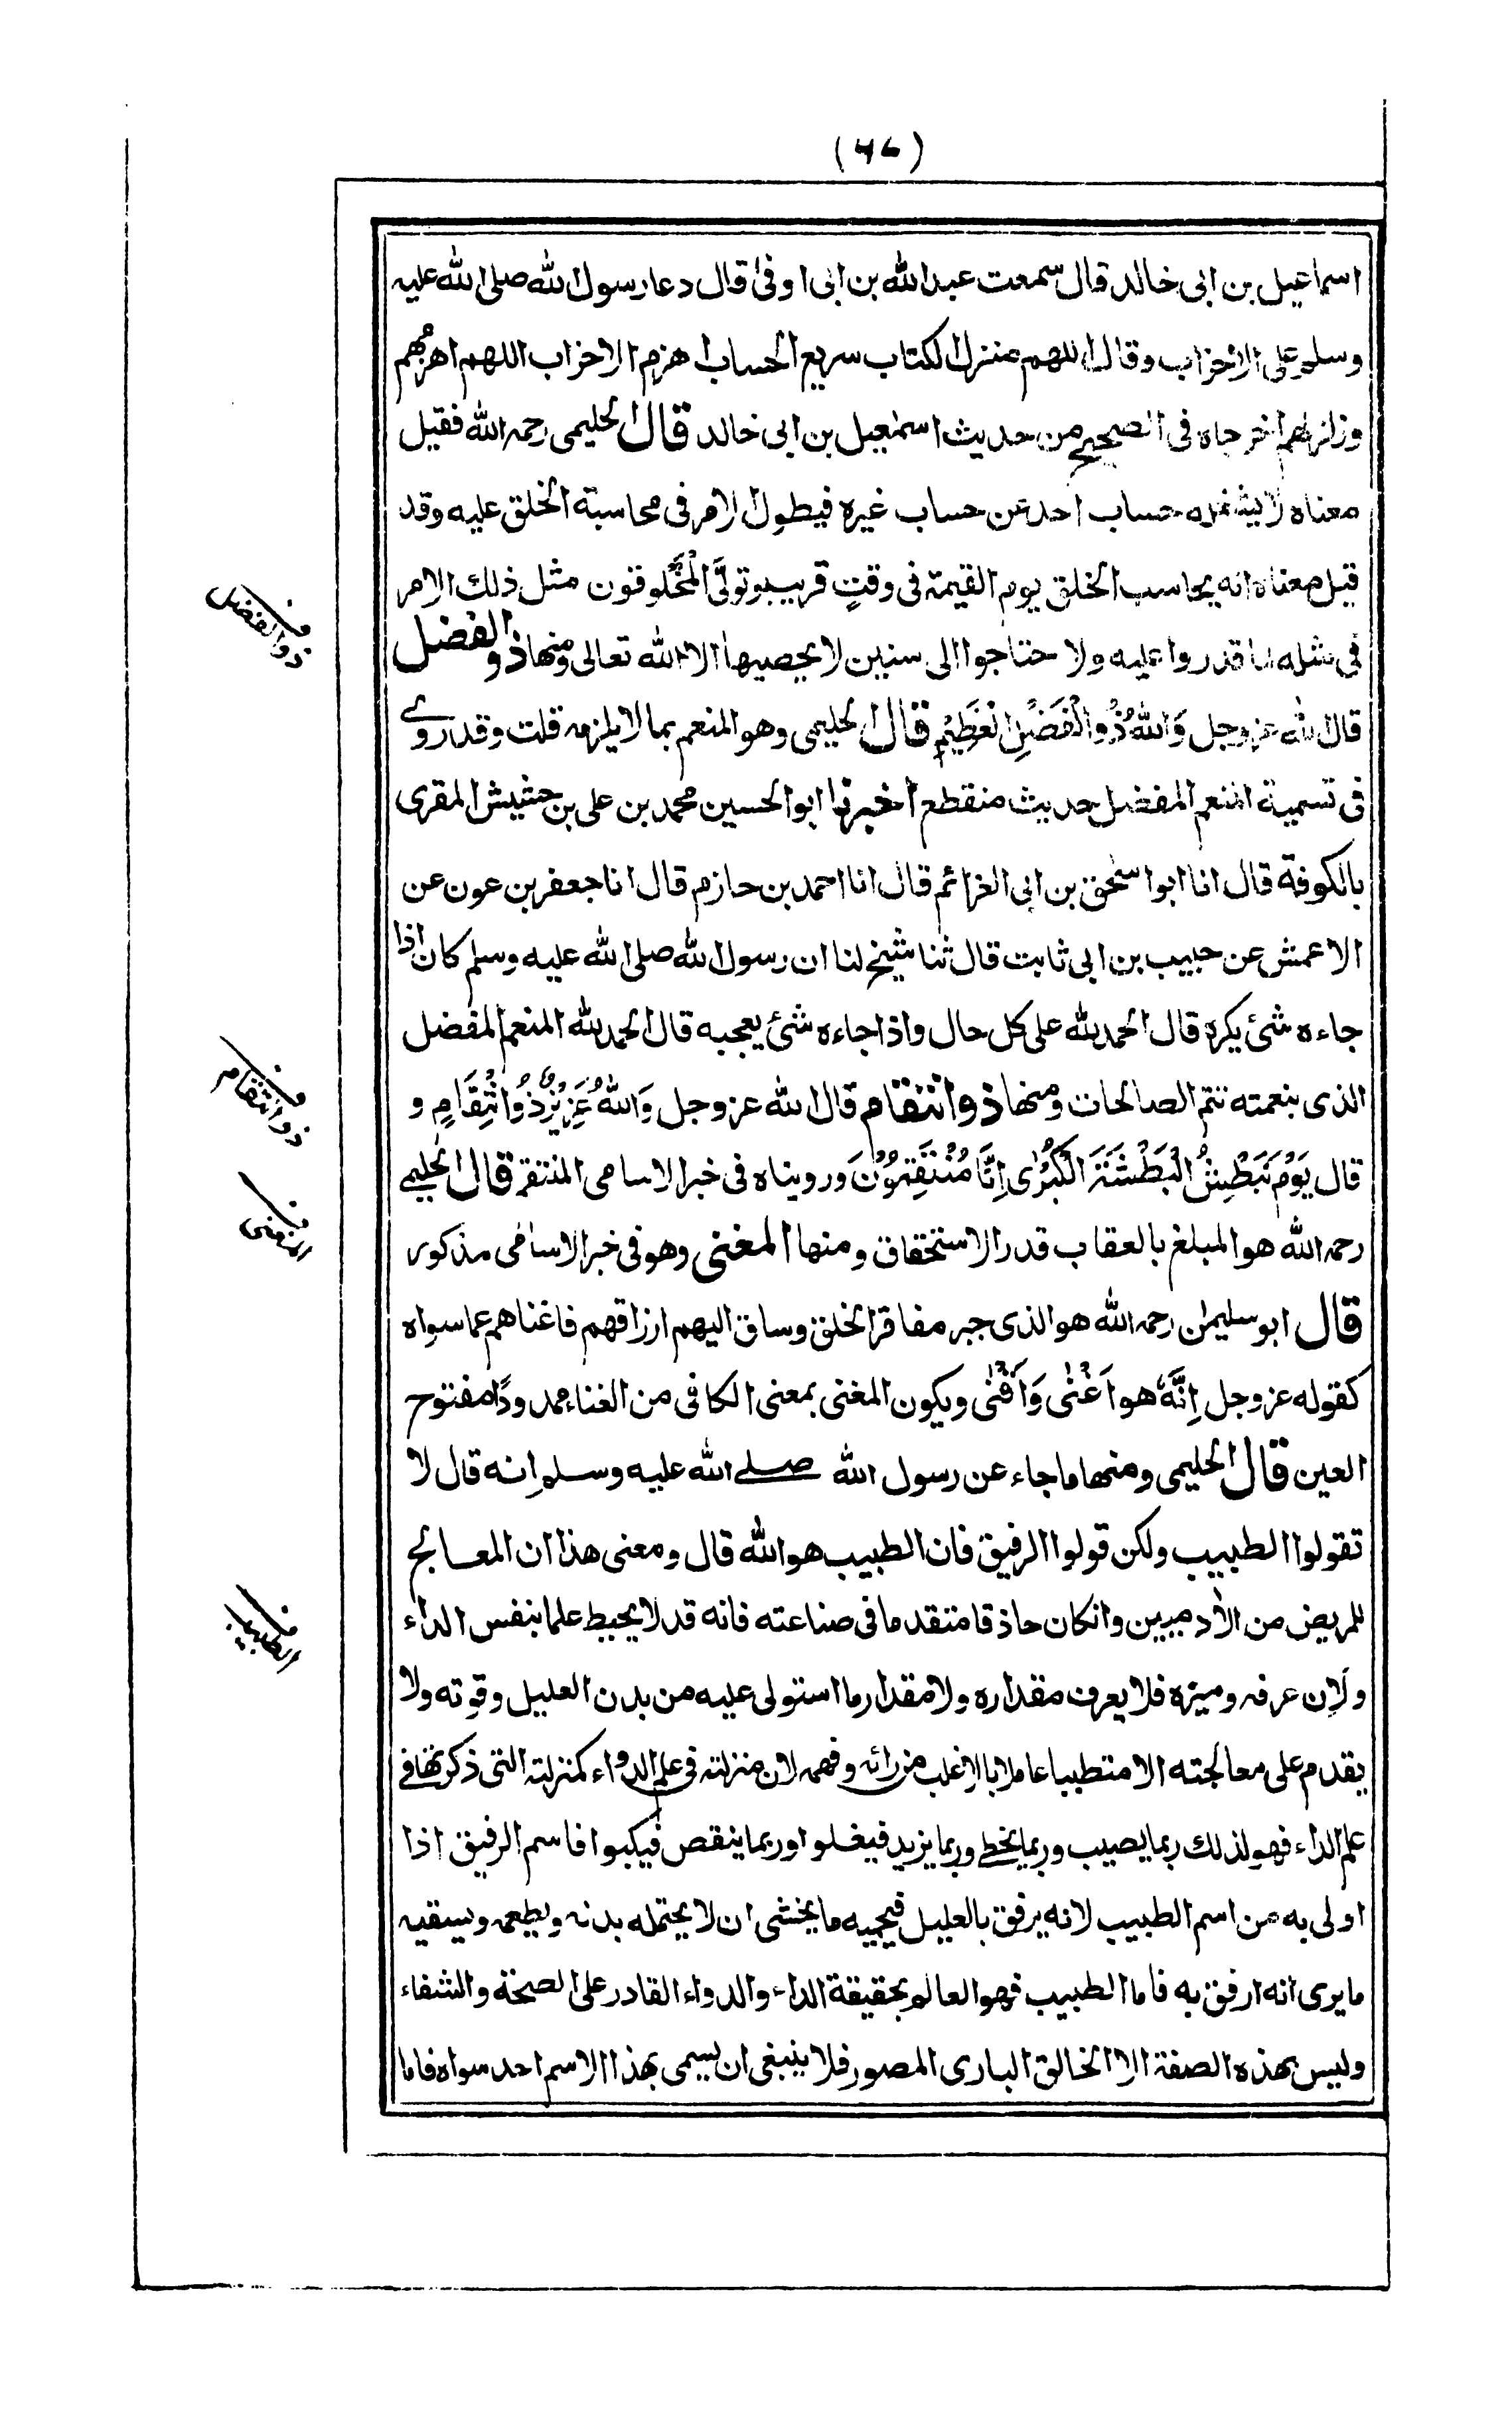 (٦٧)
اسماعيل بن ابی خالد قال سمعت عبد الله بن ابی اوفیٰ قال دعا رسول الله صلی الله عليه
وسلم علی الاحزاب وقال اللهم منزل الكتاب سريع الحساب اهزم الاحزاب اللهم اهزمهم
وزلزلهم اخرجاه فی الصحيح من حديث اسمٰعيل بن ابی خالد قال الحليمی رحمه الله فقيل
معناه لا يشغله حساب احد عن حساب غيره فيطول الامر فی محاسبة الخلق عليه وقد
قيل معناه انه يحاسب الخلق يوم القيٰمة فی وقتٍ قريب لو تولَّی المخلوقون مثل ذلك الامر
فی مثله لما قدروا عليه ولا حتاجوا الی سنين لا يحصيها الا الله تعالی ومنها ذو الفضل
قال الله عز وجل وَاللهُ ذُو الْفَضْلِ الْعَظِيْمِ قال الحليمی وهو المنعم بما لا يلزمه قلت وقد روے
فی تسمية المنعم المفضل حديث منقطع اخبرنا ابو الحسين محمد بن علی بن خشيش المقری
بالكوفة قال انا ابو اسحٰق بن ابی العزائم قال انا احمد بن حازم قال انا جعفر بن عون عن
الاعمش عن حبيب بن ابی ثابت قال ثنا شيخ لنا ان رسول الله صلی الله عليه وسلم كان اذا
جاءه شئ يكره قال الحمد لله علی كل حال واذا جاءه شئ يعجبه قال الحمد لله المنعم المفضل
الذی بنعمته تتم الصالحات ومنها ذو انتقام قال الله عز وجل وَاللهُ عَزِيْزٌ ذُو انْتِقَامٍ و
قال يَوْمَ نَبْطِشُ الْبَطْشَةَ الْكُبْرٰی اِنَّا مُنْتَقِمُوْنَ ورويناه فی خبر الاسامی المنتقم قال الحليمے
رحمه الله هو المبلغ بالعقاب قدر الاستحقاق ومنها المغنی وهو فی خبر الاسامی مذكور
قال ابو سليمٰن رحمه الله هو الذی جبر مفاقر الخلق وساق اليهم ارزاقهم فاغناهم عما سواه
كقوله عز وجل اِنَّهٗ هو اَغْنٰی وَاَقْنٰی ويكون المغنی بمعنی الكافی من الغناء ممدودًا مفتوح
العين قال الحليمی ومنها ما جاء عن رسول الله صلے الله عليه وسلم انه قال لا
تقولوا الطبيب ولكن قولوا الرفيق فان الطبيب هو الله قال ومعنی هذا ان المعالج
للمريض من الاٰدميين وانكان حاذقا متقدما فی صناعته فانه قد لا يحيط علما بنفس الداء
ولان عرفه وميزه فلا يعرف مقداره ولا مقدار ما استولی عليه من بدن العليل وقوته ولا
يقدم علی معالجته الا متطببا عاملا بالاغلب من رائه وفهمه لان منزلته فی علم الدواء كمنزلته التی ذكرتها فے
علم الداء فهو لذلك ربما يصيب وربما يخطی وربما يزيد فيغلو اوربما ينقص فيكبوا فاسم الرفيق اذا
اولی به من اسم الطبيب لانه يرفق بالعليل فيحميه ما يخشی ان لا يحتمله بدنه ويطعمه ويسقيه
ما يری انه ارفق به فاما الطبيب فهو العالم بحقيقة الداء والدواء القادر علی الصحة والشفاء
وليس بهذه الصفة الا الخالق الباری المصور فلا ينبغی ان يسمی بهذا الاسم احد سواه فاما
ذو الفضل
ذو انتقام
المغنی
الطبيب